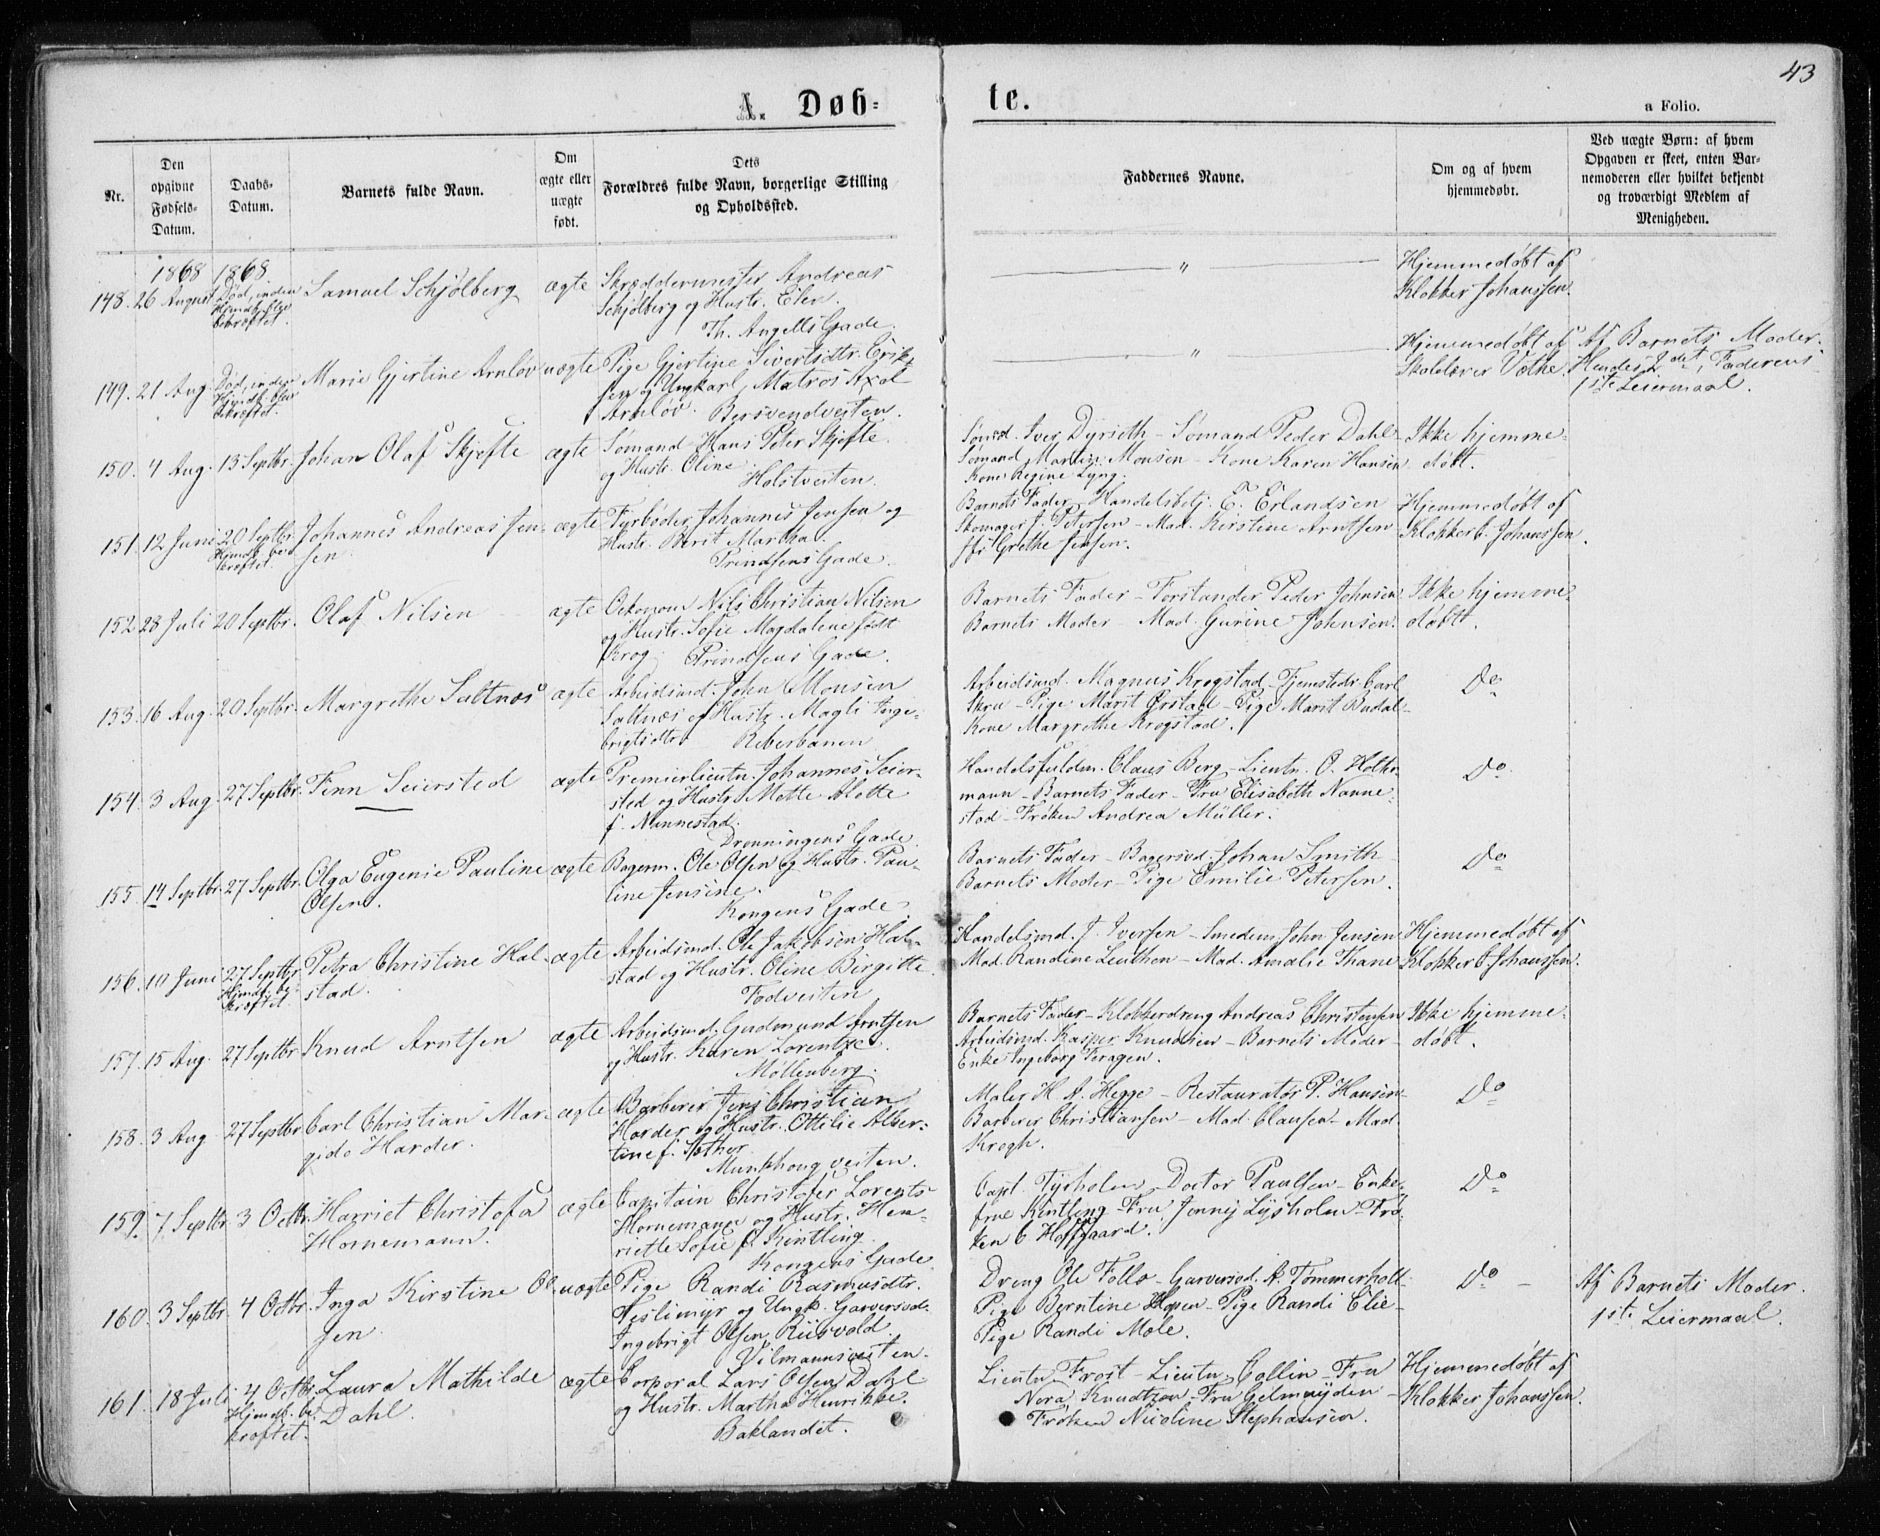 43
A. Døb-
te.
a Folio.
Nr.
Den opgivne Fødsels-Datum.
Daabs-Datum.
Barnets fulde Navn.
Om ægte eller uægte født.
Dets Forældres fulde Navn, borgerlige Stilling og Opholdssted.
Faddernes Navne.
Om og af hvem hjemmedøbt.
Ved uægte Børn: af hvem Opgaven er skeet, enten Barnemoderen eller hvilket bekjendt og troværdigt Medlem af Menigheden.
1868 1868
148. 26 August Død, inden Samuel Schjølberg ægte Skræddermester Andreas
Schjølberg og Hustr. Elen
Th. Angells Gade.
" Hjemmedøbt af
Klokker Johanssen.
149. 21 Aug. Død, inden Marie Gjertine Arnløv uægte Pige Gjertine Sivertsdtr. Erik-
sen og Ungkarl, Matros Axel
Arnløv. Bersvendveiten.
" Hjemmedøbt af
Skolelærer Vothe.
Af Barnets Moder.
Hendes 2det, Faderens
1ste Leiermaal.
150. 4 Aug. 13 Septbr. Johan Olaf Skjefte ægte Sømand Hans Peter Skjefte
og Hustr. Oline
Holstveiten.
Sømd. Iver Dyrieth - Sømand Peder Dahl
Sømand Martin Monsen - Kone Karen Hansen
Kone Regine Lyng.
Ikke hjemme-
døbt.
151. 12 Juni 20 Septbr. Johannes Andreas Jen- ægte Fyrbøder Johannes Jensen og
Hjmdb. be-
kræftet
sen.
Hustr. Berit Martha
Prindsens Gade.
Barnets Fader, Handelsbetj. E. Erlandsen
Skomager J. Petersen - Mad. Kirstine Arntsen
Grethe Jensen.
Hjemmedøbt af
Klokker C. Johanssen.
152. 28 Juli 20 Septbr. Olaf Nilsen ægte Oekonom Nils Christian Nilsen
og Hustr. Sofie Magdalene født
Krog. Prindsens Gade.
Barnets Fader - Forstander Peder Johnsen
Barnets Moder - Mad. Gurine Johnsen.
Ikke hjemme
døbt.
153. 16 Aug. 20 Septbr. Margrethe Saltnæs ægte Arbeidsmd. John Monsen
Saltnæs og Hustr. Magli Inge-
brigtsdtr. Reberbanen
Arbeidsmd. Magnus Krogstad - Tjenestedr. Carl
Skru - Pige Marit Ørstad - Pige Marit Budal -
Kone Margrethe Krogstad.
Do
154. 3 Aug. 27 Septbr. Finn Seiersted ægte Premierlieutn. Johannes Seier-
sted og Hustr. Mette Alette
f. Nannestad.
Dronningens Gade.
Handelsfuldm. Claus Berg - Lieutn. O. Holter-
mann - Barnets Fader - Fru Elisabeth Nanne-
stad - Frøken Andrea Müller.
Do
155. 14 Septbr. 27 Septbr. Olga Eugenie Pauline ægte Bagerm. Ole Olsen og Hustr. Pau-
Olsen.
line Jensine.
Kongens Gade
Barnets Fader - Bagersvd. Johan Smith
Barnets Moder - Pige Emilie Petersen.
Do
156. 10 Juni 27 Septbr. Petra Christine Hal- ægte Arbeidsmd. Ole Jakobsen Hal-
Hjmdb. be-
kræftet
stad.
stad og Hustr. Oline Birgitte.
Fodveiten
Handelsmd. J. Iversen - Smedem. John Jensen
Mad. Randine Leuthen - Mad. Amalie Thane
Hjemmedøbt af
Klokker C. Johanssen.
157. 15 Aug. 27 Septbr. Knud Arntsen ægte Arbeidsmd. Gudmund Arntsen
og Hustr. Karen Lorentze
Møllenberg.
Barnets Fader - Klokkerdreng Andreas Christensen
Arbeidsmd. Kasper Knudsen - Barnets Moder -
Enke Ingeborg Foragen.
Ikke hjemme-
døbt.
158. 3 Aug. 27 Septbr. Carl Christian Mar- ægte Barberer Jens Christian
gido Harder.
Harder og Hustr. Ottilie Alber-
tine f. Sother
Munkhaugveiten.
Maler H. A. Hegge - Restauratør P. Hansen
Barberer Christiansen - Mad. Clausen - Mad.
Krogh.
Do
159. 7 Septbr. 3 Octbr. Harriet Christofa ægte Capitain Christofer Lorents
Hornemann.
Hornemann og Hustr. Hen-
riette Sofie f. Kintling
Kongens Gade.
Capt. Lysholm, Doctor Paulsen - Enke-
frue Kintling - Fru Jenny Lysholm - Frø-
ken C Hoffgaard.
Do
160. 3 Septbr. 4 Octbr. Inga Kirstine Ol- uægte Pige Randi Rasmusdtr.
sen
Neslimyr og Ungk. Garversvd.
Ingebrigt Olsen Riisvold
Vilmannsveiten.
Dreng Ole Follo - Garversvd. A. Tømmerholt
Pige Berntine Hoven - Pige Randi Elie -
Pige Randi Mole.
Do
Af Barnets Moder.
1ste Leiermaal.
161. 18 Juli 4 Octbr. Laura Mathilde ægte Corporal Lars Olsen Dahl
Hjmdb. be-
kræftet.
Dahl.
og Hustr. Martha Henrikke.
Baklandet.
Lieutn. Frost - Lieutn. Collin - Fru
Nora Knudtzon - Fru Gelmuyden -
Frøken Nicoline Stephansen.
Hjemmedøbt af
Klokker Johanssen.